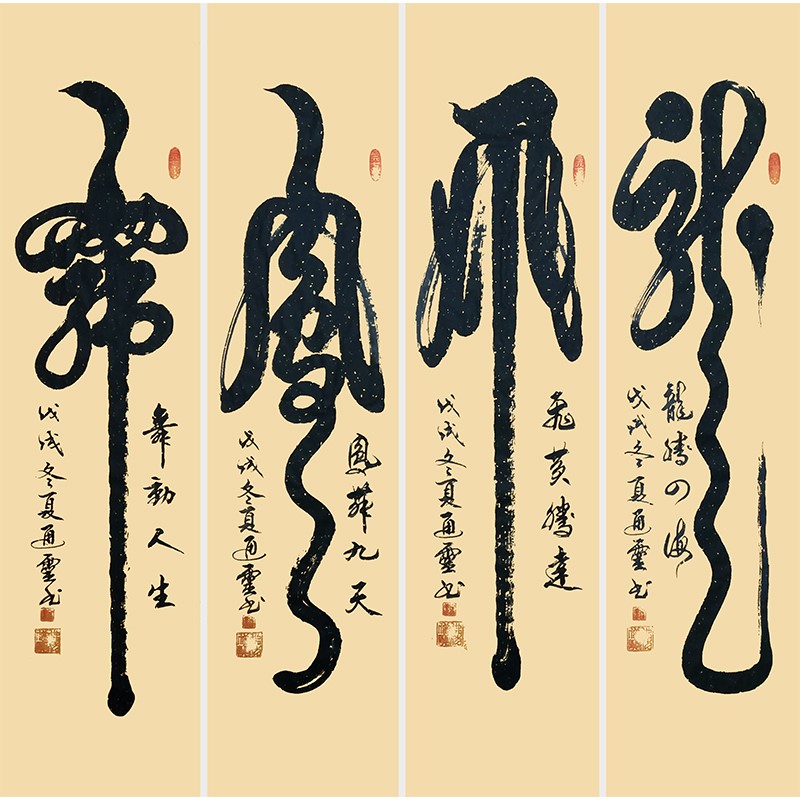 龍
龍騰四海
戊戌冬夏通靈书
飛
飛黄騰達
戊戌冬夏通靈书
鳳
鳳舞九天
戊戌冬夏通靈书
舞
舞動人生
戊戌冬夏通靈书